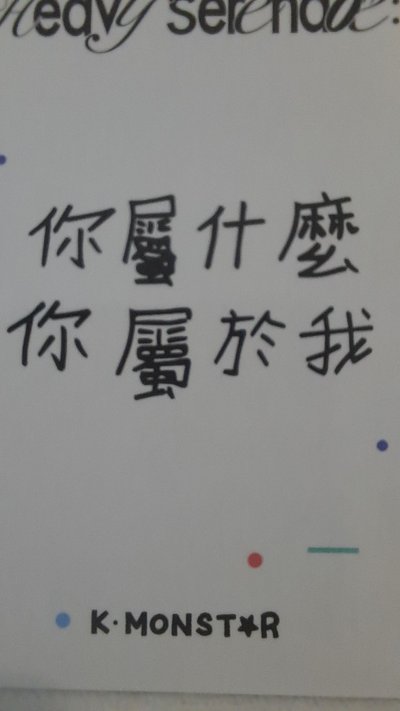 Heavy Serenade:
你屬什麼
你屬於我
K·MONST★R